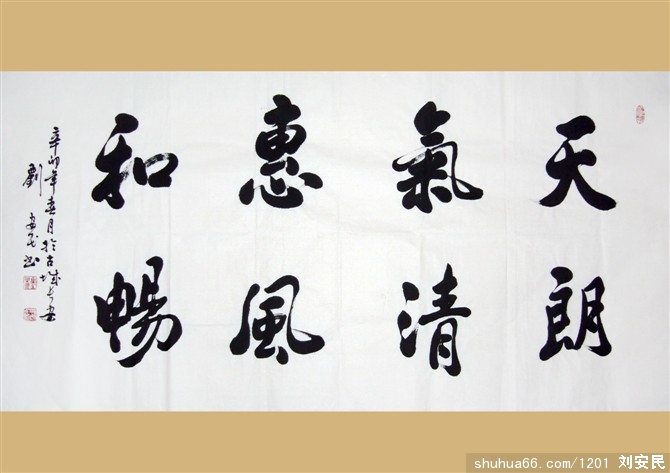 天朗
氣清
惠風
和暢
辛卯年春月於古城長安
劉安民書
shuhua66.com/1201 刘安民